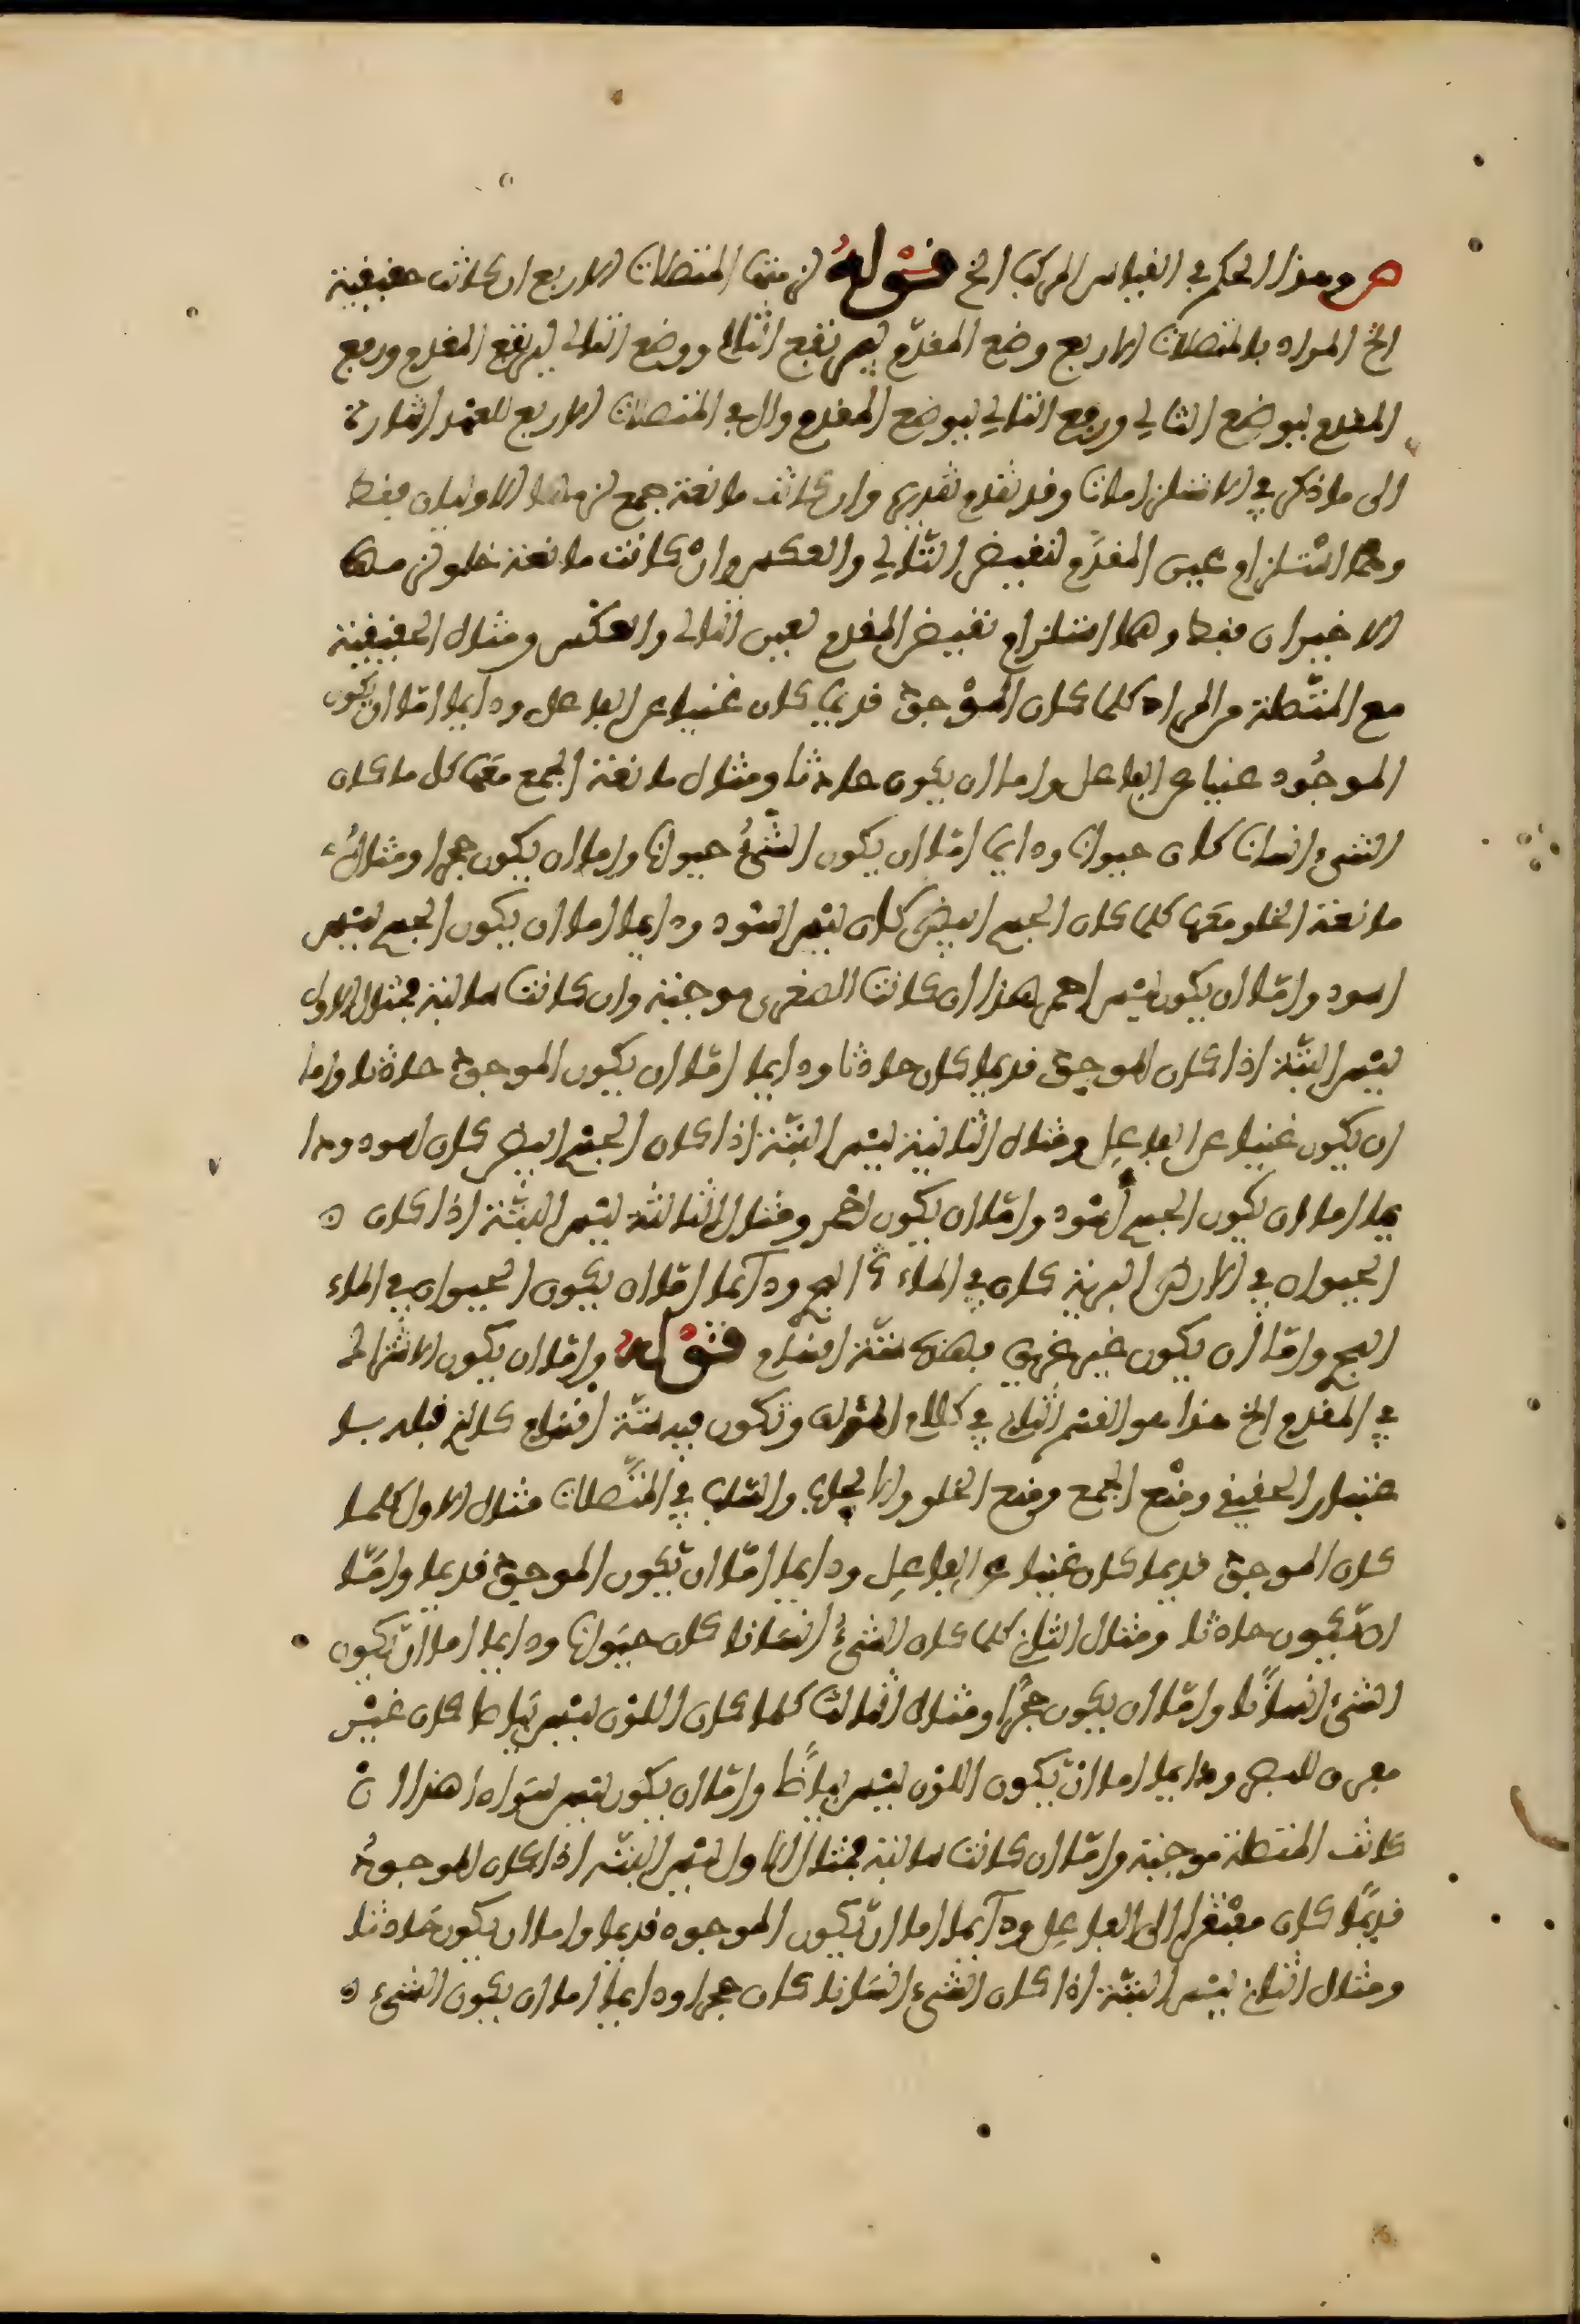 ص وهذا الحكم في القياس المركب الخ قوله لزمتها المتصلات الاربع ان كانت حقيقية
الخ المراد بالمتصلات الاربع وضع المقدم ليرتفع التالي ووضع التالي ليرتفع المقدم ورفع
المقدم ليوضع التالي ورفع التالي ليوضع المقدم وال في المتصلات الاربع للعهد اشارة
الى ما ذكر في الاستلزامات وقد تقدم تقديرها وان كانت مانعة جمع لزمتها الاوليان فقط
وهما استلزام عين المقدم لنقيض التالي والعكس وان كانت مانعة خلو لزمتها
الاخيران فقط وهما استلزام نقيض المقدم لعين التالي والعكس ومثال الحقيقية
مع المتصلة من المراد كلما كان الموجود قديما كان غنيا عن الفاعل ودايما اما ان يكون
الموجود غنيا عن الفاعل واما ان يكون حادثا ومثال مانعة الجمع معها كل ما كان
الشيء انسانا كان حيوانا ودايما اما ان يكون الشيء حيوانا واما ان يكون حجرا ومثال
مانعة الخلو معها كلما كان الجسم ابيض كان ليس اسود ودايما اما ان يكون الجسم ليس
اسود واما ان يكون ليس احمر هذا ان كانت الصغرى موجبة وان كانت سالبة فمثال الاول
ليس البتة اذا كان الموجود قديما كان حادثا ودايما اما ان يكون الموجود حادثا واما
ان يكون غنيا عن الفاعل ومثال الثانية ليس البتة اذا كان الجسم ابيض كان اسود ودا
يما اما ان يكون الجسم اسود واما ان يكون احمر ومثال الثالثة ليس البتة اذا كان
الحيوان في الارض البرية كان في الماء البحر ودآيما اما ان يكون الحيوان في الماء
البحر واما ان يكون غير غريق فهذه ستة اقسام قوله واما ان يكون الاشتراك
في المقدم الخ هذا هو القسم الثاني في كلام المؤلف وتكون فيه ستة اقسام كالذي قبله با
عتبار الحقيقي ومنع الجمع ومنع الخلو والايجاب والسلب في المتصلات مثال الاول كلما
كان الموجود قديما كان غنيا عن الفاعل ودايما اما ان يكون الموجود قديما واما
ان يكون حادثا ومثال الثاني كلما كان الشيء انسانا كان حيوانا ودايما اما ان يكون
الشيء انسانا واما ان يكون حجرا ومثال الثالث كلما كان اللون ليس بياضا كان غير
مفرق للبصر ودايما اما ان يكون اللون ليس بياضا واما ان يكون ليس سوادا هذا ان
كانت المتصلة موجبة واما ان كانت سالبة فمثال الاول ليس البتة اذا كان الموجود
قديما كان مفتقرا الى الفاعل ودآيما اما ان يكون الموجود قديما واما ان يكون حادثا
ومثال الثاني ليس البتة اذا كان الشيء انسانا كان حجرا ودايما اما ان يكون الشيء